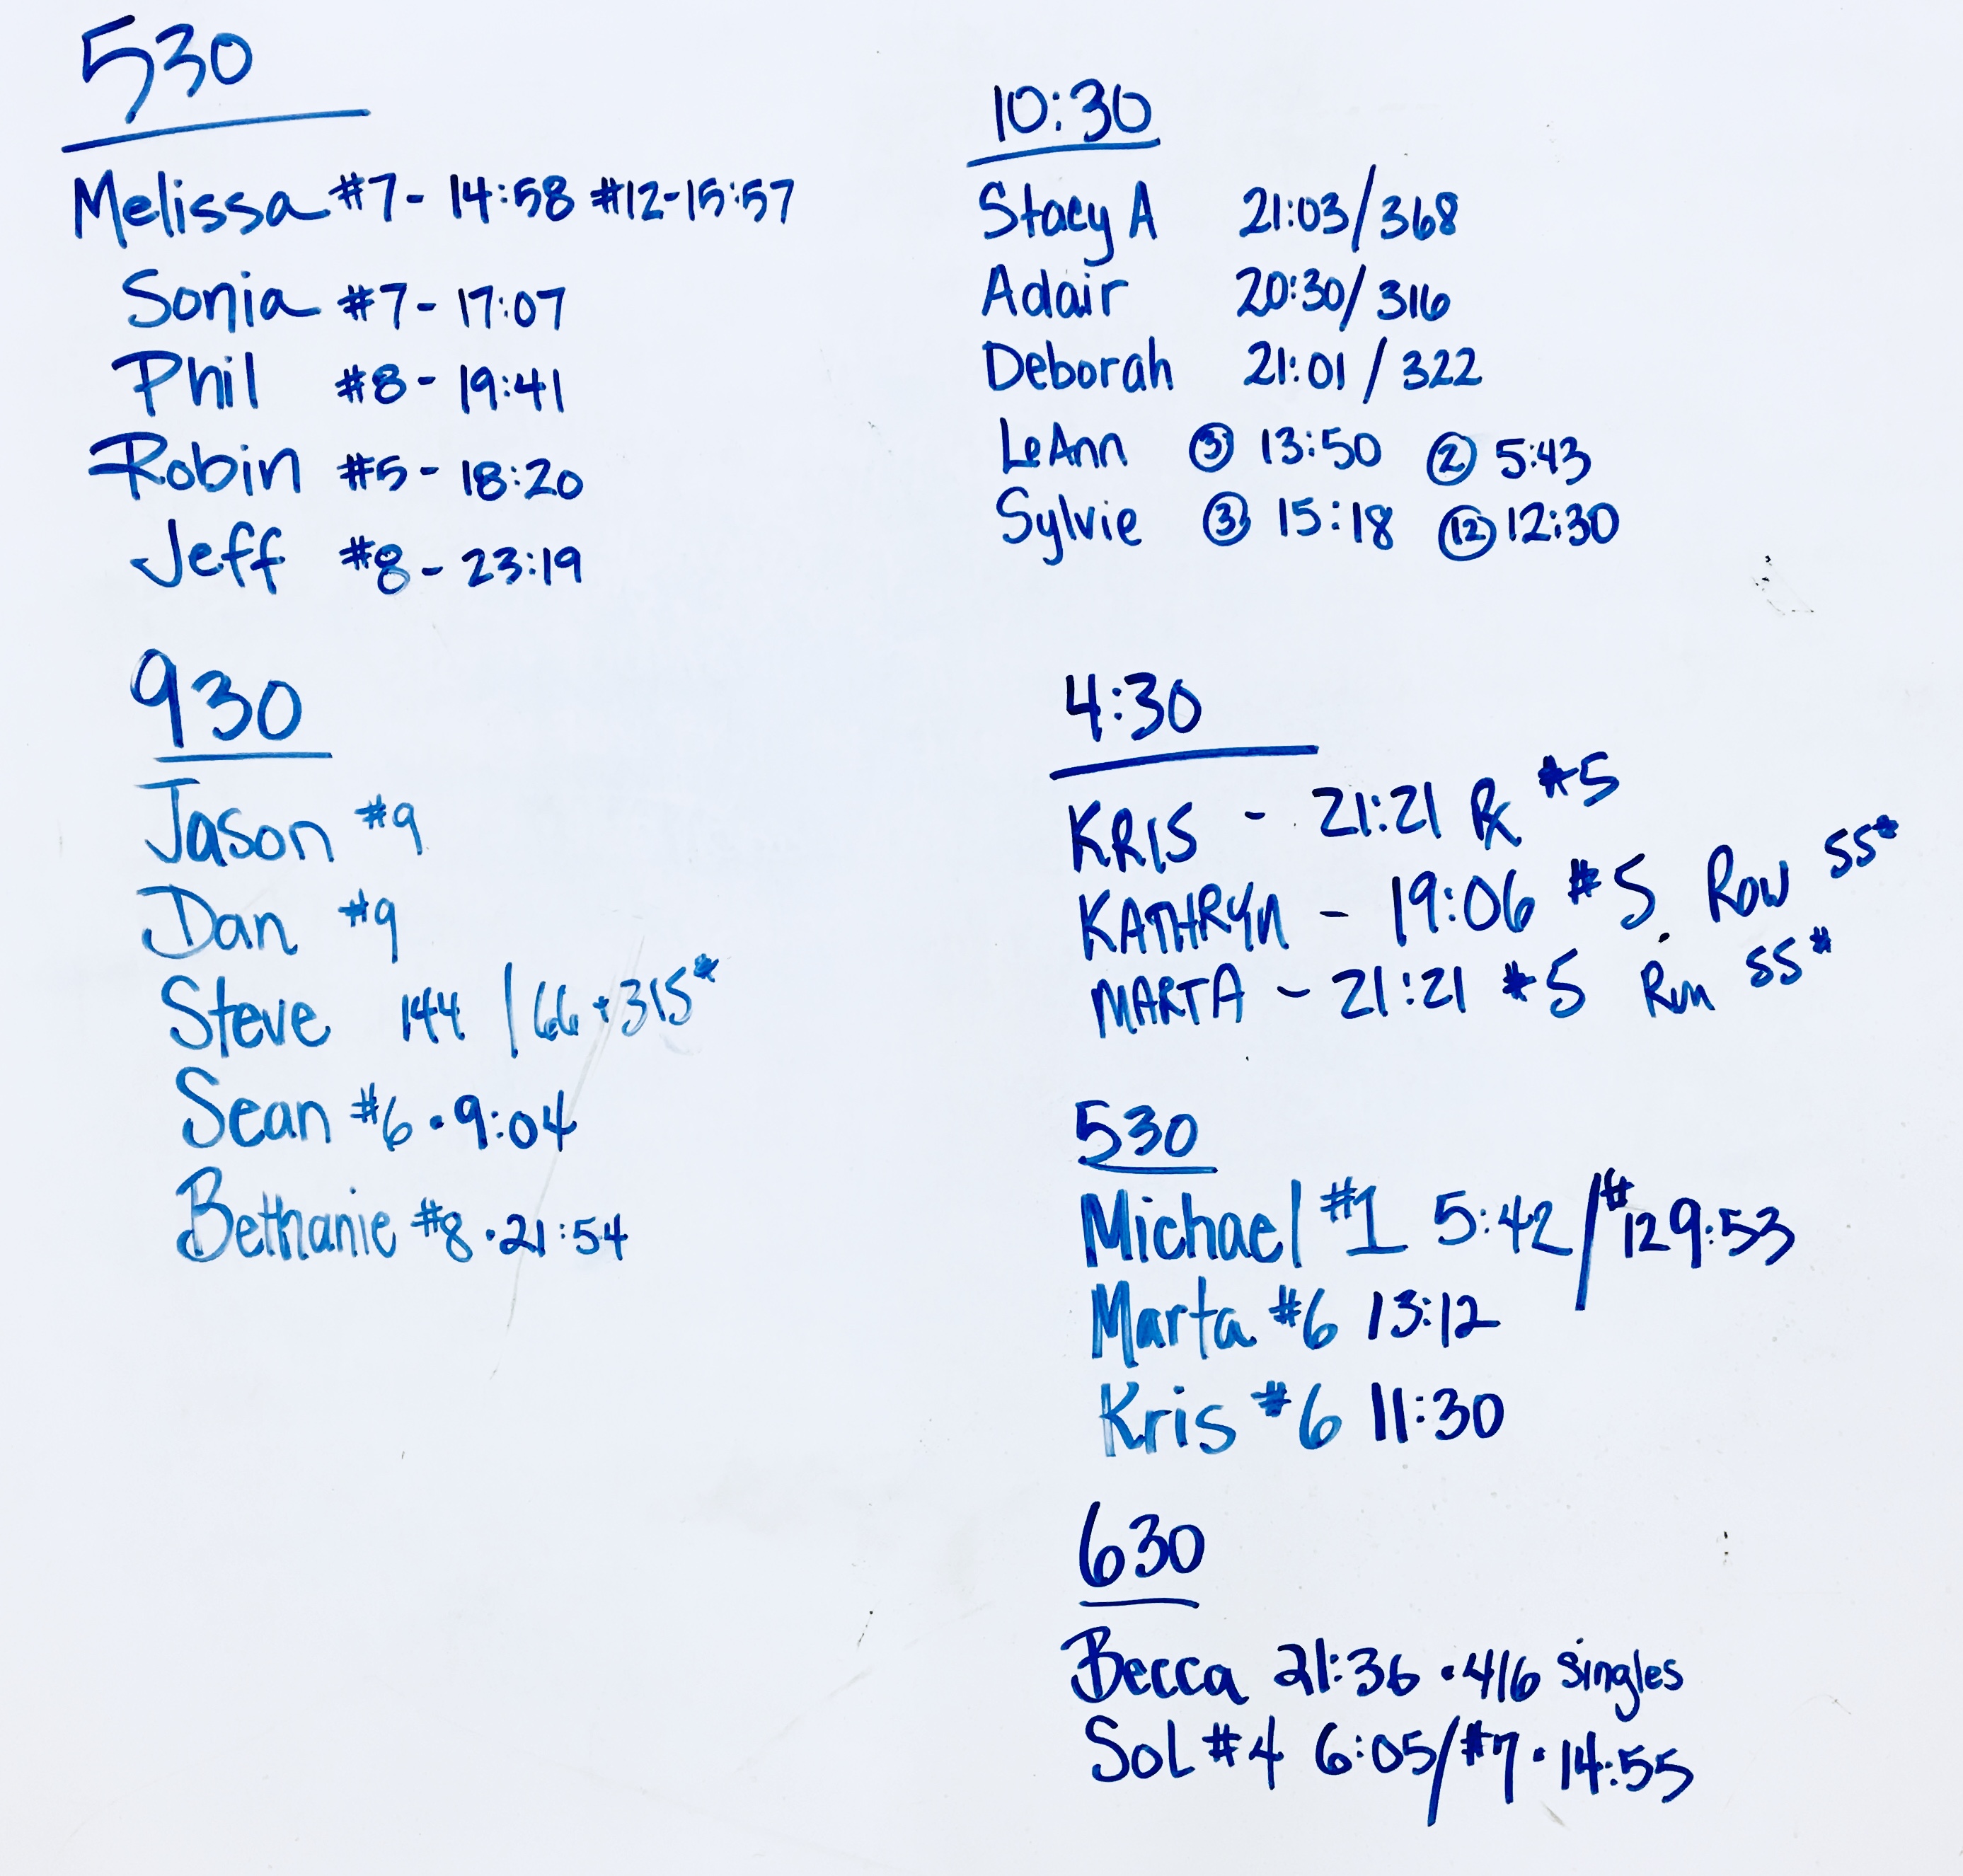 530
Melissa #7- 14:58 #12-15:57
Sonia #7- 17:07
Phil #8- 19:41
Robin #5- 18:20
Jeff #8- 23:19
930
Jason #9
Dan #9
Steve 144 / 66+315#
Sean #6 • 9:04
Bethanie #8 • 21:54
10:30
Stacy A 21:03/368
Adair 20:30/316
Deborah 21:01 / 322
LeAnn ③ 13:50 ② 5:43
Sylvie ③ 15:18 ⑫ 12:30
4:30
KRIS - 21:21 Rx #5
KATHRYN - 19:06 #5 Row 55#
MARTA - 21:21 #5 Run 55#
530
Michael #1 5:42 / #12 9:53
Marta #6 13:12
Kris #6 11:30
630
Becca 21:36 • 416 singles
Sol #4 6:05/#7 • 14:55